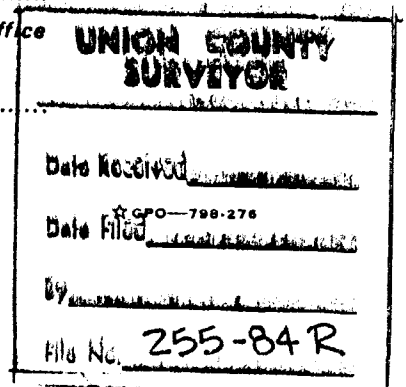 ffice
UNION COUNTY
SURVEYOR
Date Received
☆ GPO—798-276
Date Filed
By
File No. 255-84 R